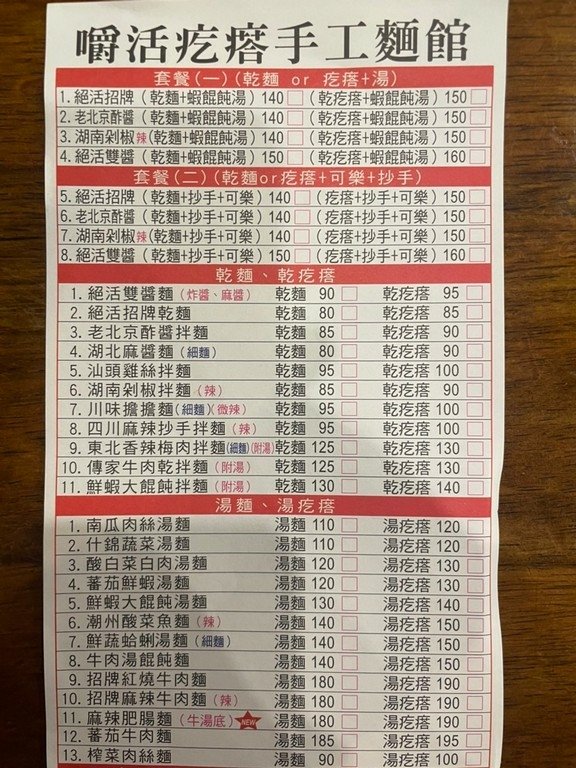 嚼活疙瘩手工麵館
套餐(一)(乾麵 or 疙瘩+湯)
1. 絕活招牌(乾麵+蝦餛飩湯) 140 □ (乾疙瘩+蝦餛飩湯) 150 □
2. 老北京酢醬(乾麵+蝦餛飩湯) 140 □ (乾疙瘩+蝦餛飩湯) 150 □
3. 湖南剁椒辣(乾麵+蝦餛飩湯) 140 □ (乾疙瘩+蝦餛飩湯) 150 □
4. 絕活雙醬(乾麵+蝦餛飩湯) 150 □ (乾疙瘩+蝦餛飩湯) 160 □
套餐(二)(乾麵or疙瘩+可樂+抄手)
5. 絕活招牌(乾麵+抄手+可樂) 140 □ (疙瘩+抄手+可樂) 150 □
6. 老北京酢醬(乾麵+抄手+可樂) 140 □ (疙瘩+抄手+可樂) 150 □
7. 湖南剁椒辣(乾麵+抄手+可樂) 140 □ (疙瘩+抄手+可樂) 150 □
8. 絕活雙醬(乾麵+抄手+可樂) 150 □ (疙瘩+抄手+可樂) 160 □
乾麵、乾疙瘩
1. 絕活雙醬麵(炸醬、麻醬) 乾麵 90 □ 乾疙瘩 95 □
2. 絕活招牌乾麵 乾麵 80 □ 乾疙瘩 85 □
3. 老北京酢醬拌麵 乾麵 85 □ 乾疙瘩 90 □
4. 湖北麻醬麵(細麵) 乾麵 80 □ 乾疙瘩 90 □
5. 汕頭雞絲拌麵 乾麵 95 □ 乾疙瘩 100 □
6. 湖南剁椒拌麵(辣) 乾麵 85 □ 乾疙瘩 90 □
7. 川味擔擔麵(細麵)(微辣) 乾麵 95 □ 乾疙瘩 100 □
8. 四川麻辣抄手拌麵(辣) 乾麵 95 □ 乾疙瘩 100 □
9. 東北香辣梅肉拌麵(細麵)(附湯) 乾麵 125 □ 乾疙瘩 130 □
10. 傳家牛肉乾拌麵(附湯) 乾麵 125 □ 乾疙瘩 130 □
11. 鮮蝦大餛飩拌麵(附湯) 乾麵 130 □ 乾疙瘩 140 □
湯麵、湯疙瘩
1. 南瓜肉絲湯麵 湯麵 110 □ 湯疙瘩 120 □
2. 什錦蔬菜湯麵 湯麵 110 □ 湯疙瘩 120 □
3. 酸白菜白肉湯麵 湯麵 120 □ 湯疙瘩 130 □
4. 蕃茄鮮蝦湯麵 湯麵 120 □ 湯疙瘩 130 □
5. 鮮蝦大餛飩湯麵 湯麵 130 □ 湯疙瘩 140 □
6. 潮州酸菜魚麵(辣) 湯麵 140 □ 湯疙瘩 150 □
7. 鮮蔬蛤蜊湯麵(細麵) 湯麵 140 □ 湯疙瘩 150 □
8. 牛肉湯餛飩麵 湯麵 140 □ 湯疙瘩 150 □
9. 招牌紅燒牛肉麵 湯麵 180 □ 湯疙瘩 190 □
10. 招牌麻辣牛肉麵(辣) 湯麵 180 □ 湯疙瘩 190 □
11. 麻辣肥腸麵(牛湯底) NEW 湯麵 180 □ 湯疙瘩 190 □
12. 蕃茄牛肉麵 湯麵 185 □ 湯疙瘩 195 □
13. 榨菜肉絲麵 湯麵 90 □ 湯疙瘩 100 □